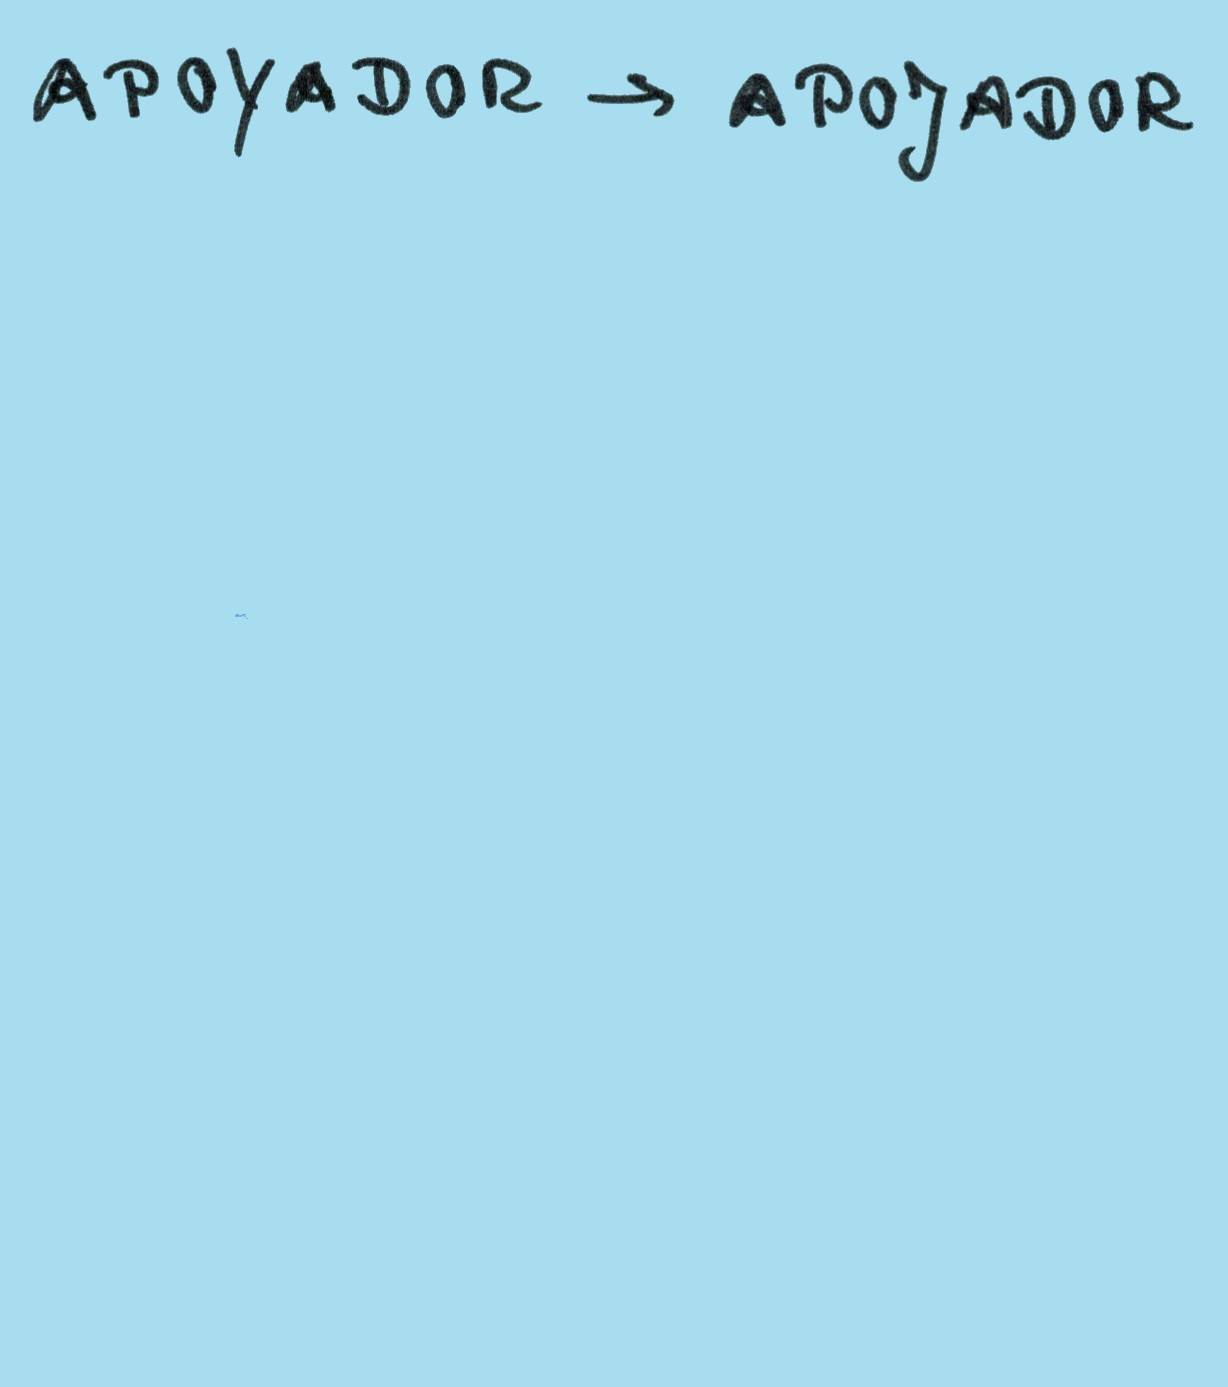 APOYADOR → APOJADOR